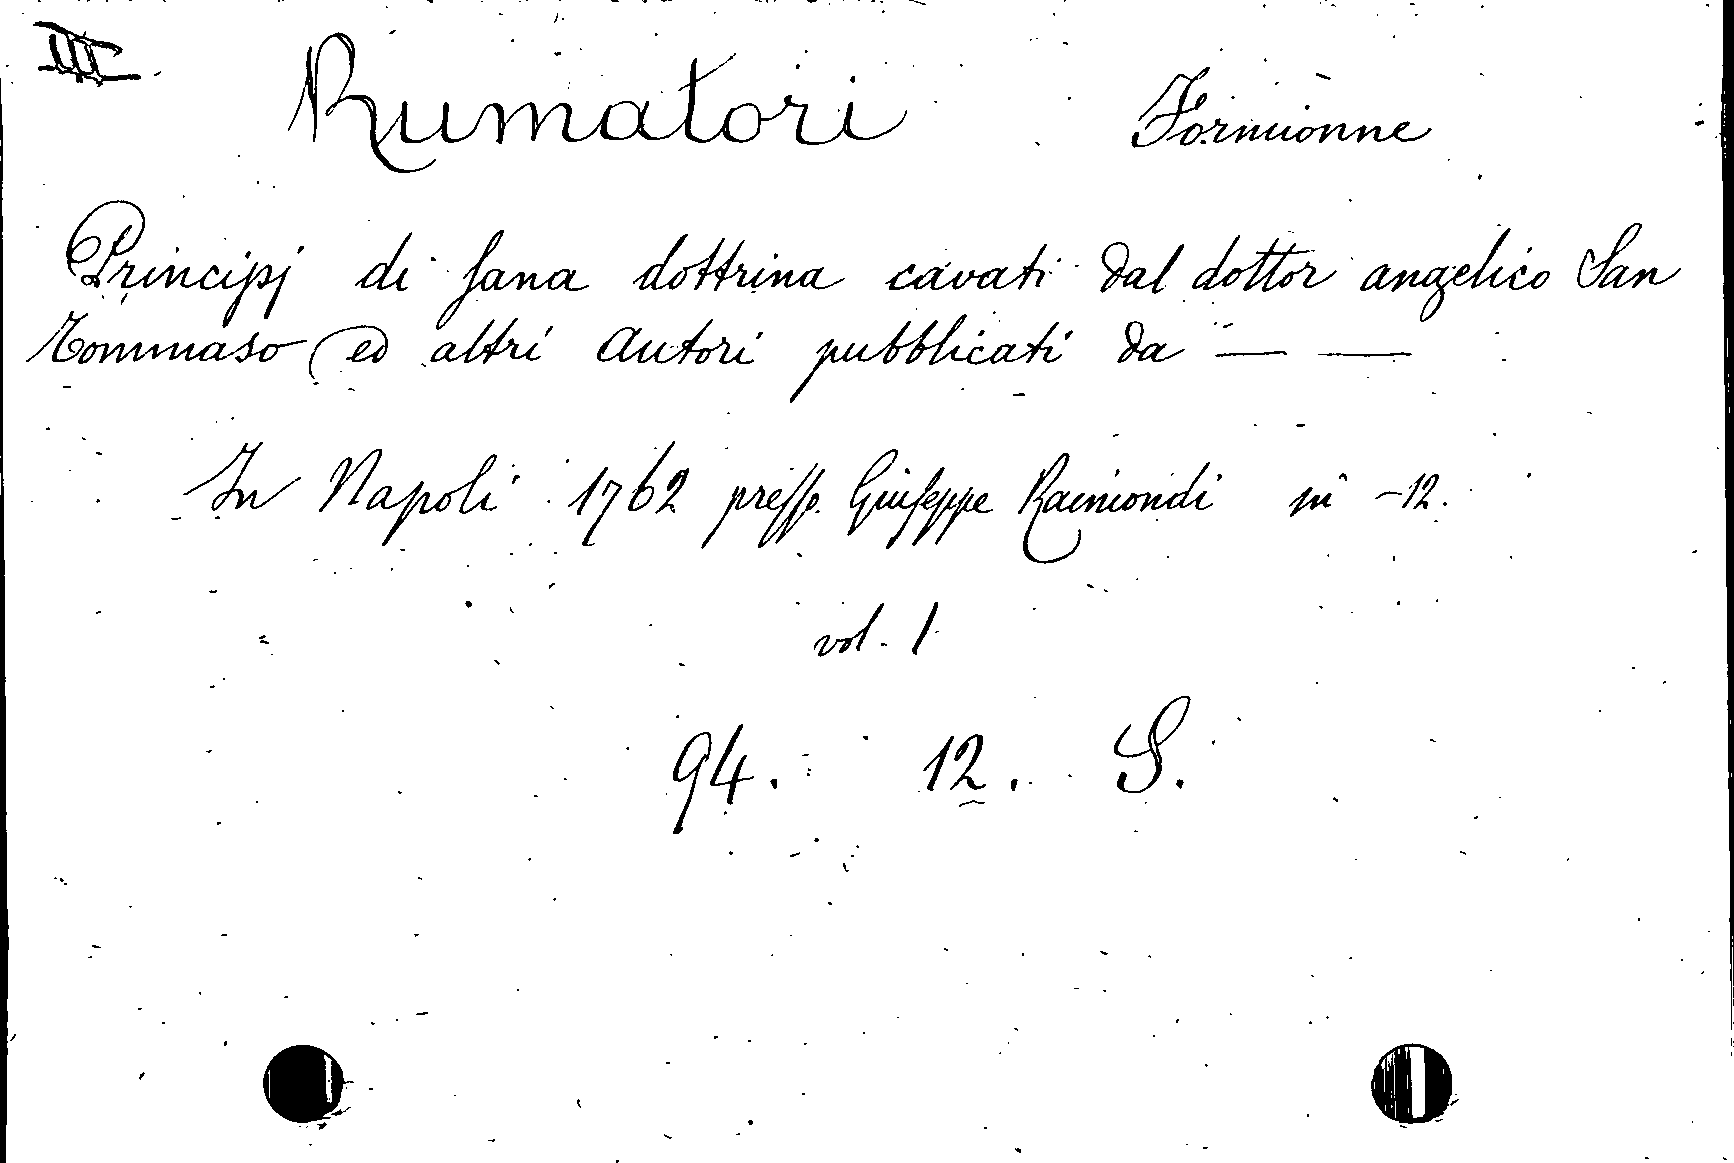 III
Rumatori Formionne
Principj di sana dottrina cavati dal dottor angelico San
Tommaso ed altri autori pubblicati da — —
In Napoli 1762 presso Giuseppe Raimondi in -12.
vol. 1
94. 12. S.